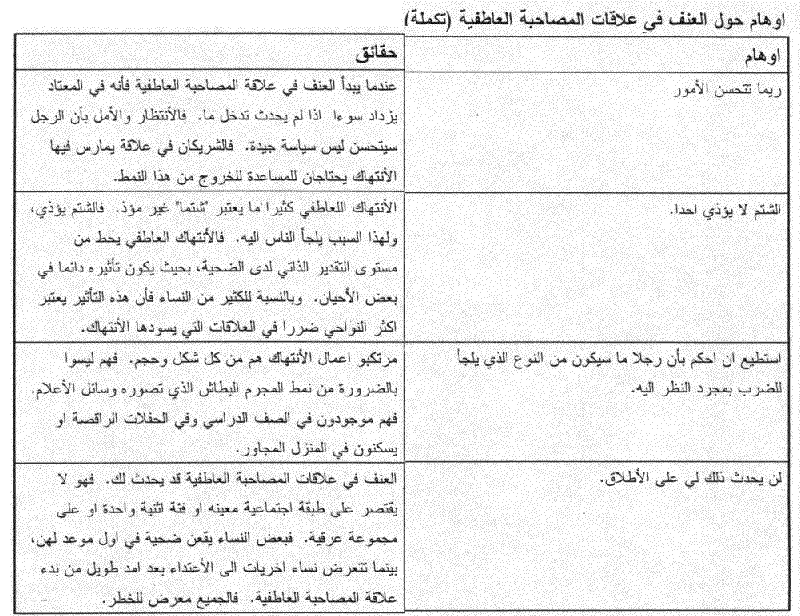 اوهام حول العنف في علاقات المصاحبة العاطفية (تكملة)
اوهام
حقائق
ربما تتحسن الأمور
عندما يبدأ العنف في علاقة المصاحبة العاطفية فأنه في المعتاد
يزداد سوءا اذا لم يحدث تدخل ما. فالأنتظار والأمل بأن الرجل
سيتحسن ليس سياسة جيدة. فالشريكان في علاقة يمارس فيها
الأنتهاك يحتاجان للمساعدة للخروج من هذا النمط.
الشتم لا يؤذي احدا.
الأنتهاك اللعاطفي كثيرا ما يعتبر "شتما" غير مؤذ. فالشتم يؤذي،
ولهذا السبب يلجأ الناس اليه. فالأنتهاك العاطفي يحط من
مستوى التقدير الذاتي لدى الضحية، بحيث يكون تأثيره دائما في
بعض الأحيان. وبالنسبة للكثير من النساء فأن هذه التأثير يعتبر
اكثر النواحي ضررا في العلاقات التي يسودها الأنتهاك.
استطيع ان احكم بأن رجلا ما سيكون من النوع الذي يلجأ
للضرب بمجرد النظر اليه.
مرتكبو اعمال الأنتهاك هم من كل شكل وحجم. فهم ليسوا
بالضرورة من نمط المجرم البطاش الذي تصوره وسائل الأعلام.
فهم موجودون في الصف الدراسي وفي الحفلات الراقصة او
يسكنون في المنزل المجاور.
لن يحدث ذلك لي على الأطلاق.
العنف في علاقات المصاحبة العاطفية قد يحدث لك. فهو لا
يقتصر على طبقة اجتماعية معينه او فئة اثنية واحدة او على
مجموعة عرقية. فبعض النساء يقعن ضحية في اول موعد لهن،
بينما تتعرض نساء اخريات الى الأعتداء بعد امد طويل من بدء
علاقة المصاحبة العاطفية. فالجميع معرض للخطر.